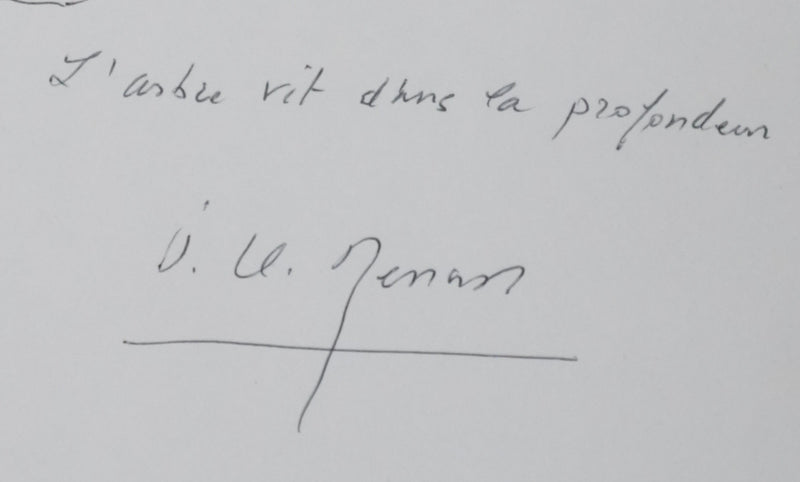 L'arbre vit dans la profondeur